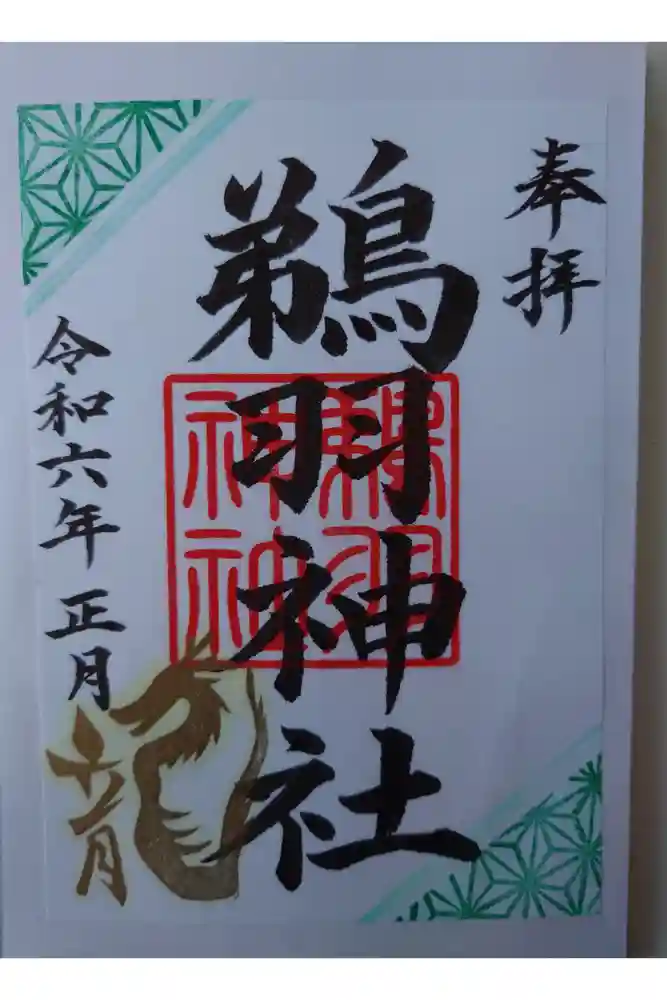 奉拝
鵜羽神社
鵜羽神社
令和六年 正月